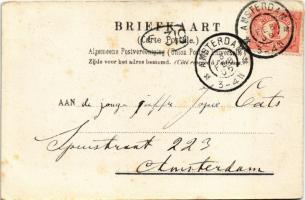 BRIEFKAART
(Carte Postale.)
Algemeene Postvereeniging (Union Postale Universelle)
Zijde voor het adres bestemd. (Côté réservé à l'adresse)
AMSTERDAM
3-4N
AMSTERDAM
3-4N
AAN de jonge juffr. Cats
Spuistraat 223
Amsterdam